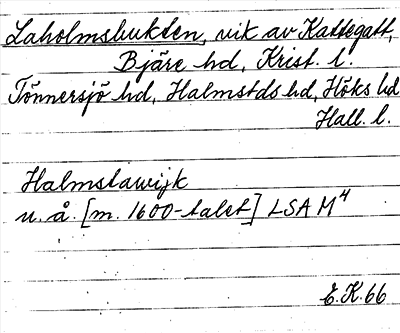 Laholmsbukten, vik av Kattegatt,
Bjäre hd, Krist. l.
Tönnersjö hd, Halmstds hd, Höks hd
Hall. l.
Halmstawijk
u. å. [m. 1600-talet] LSA M4
E.K. 66